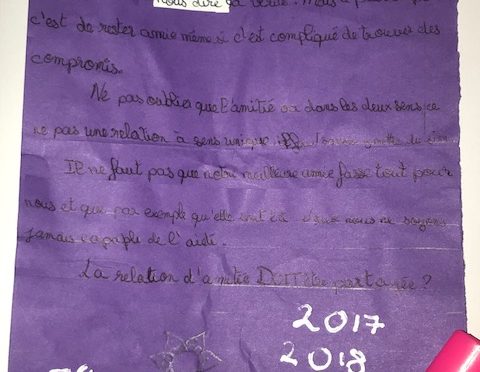 nous dire la vérité. Mais
c'est de rester amie même si c'est compliqué de trouver des
compromis.
Ne pas oublier que l'amitié va dans les deux sens, ce
ne pas une relation à sens unique
Il ne faut pas que notre meilleure amie fasse tout pour
nous et que par exemple qu'elle nous ne soyons
jamais capable de l'aidé.
La relation d'amitié DOIT être partagée ?
2017
2018